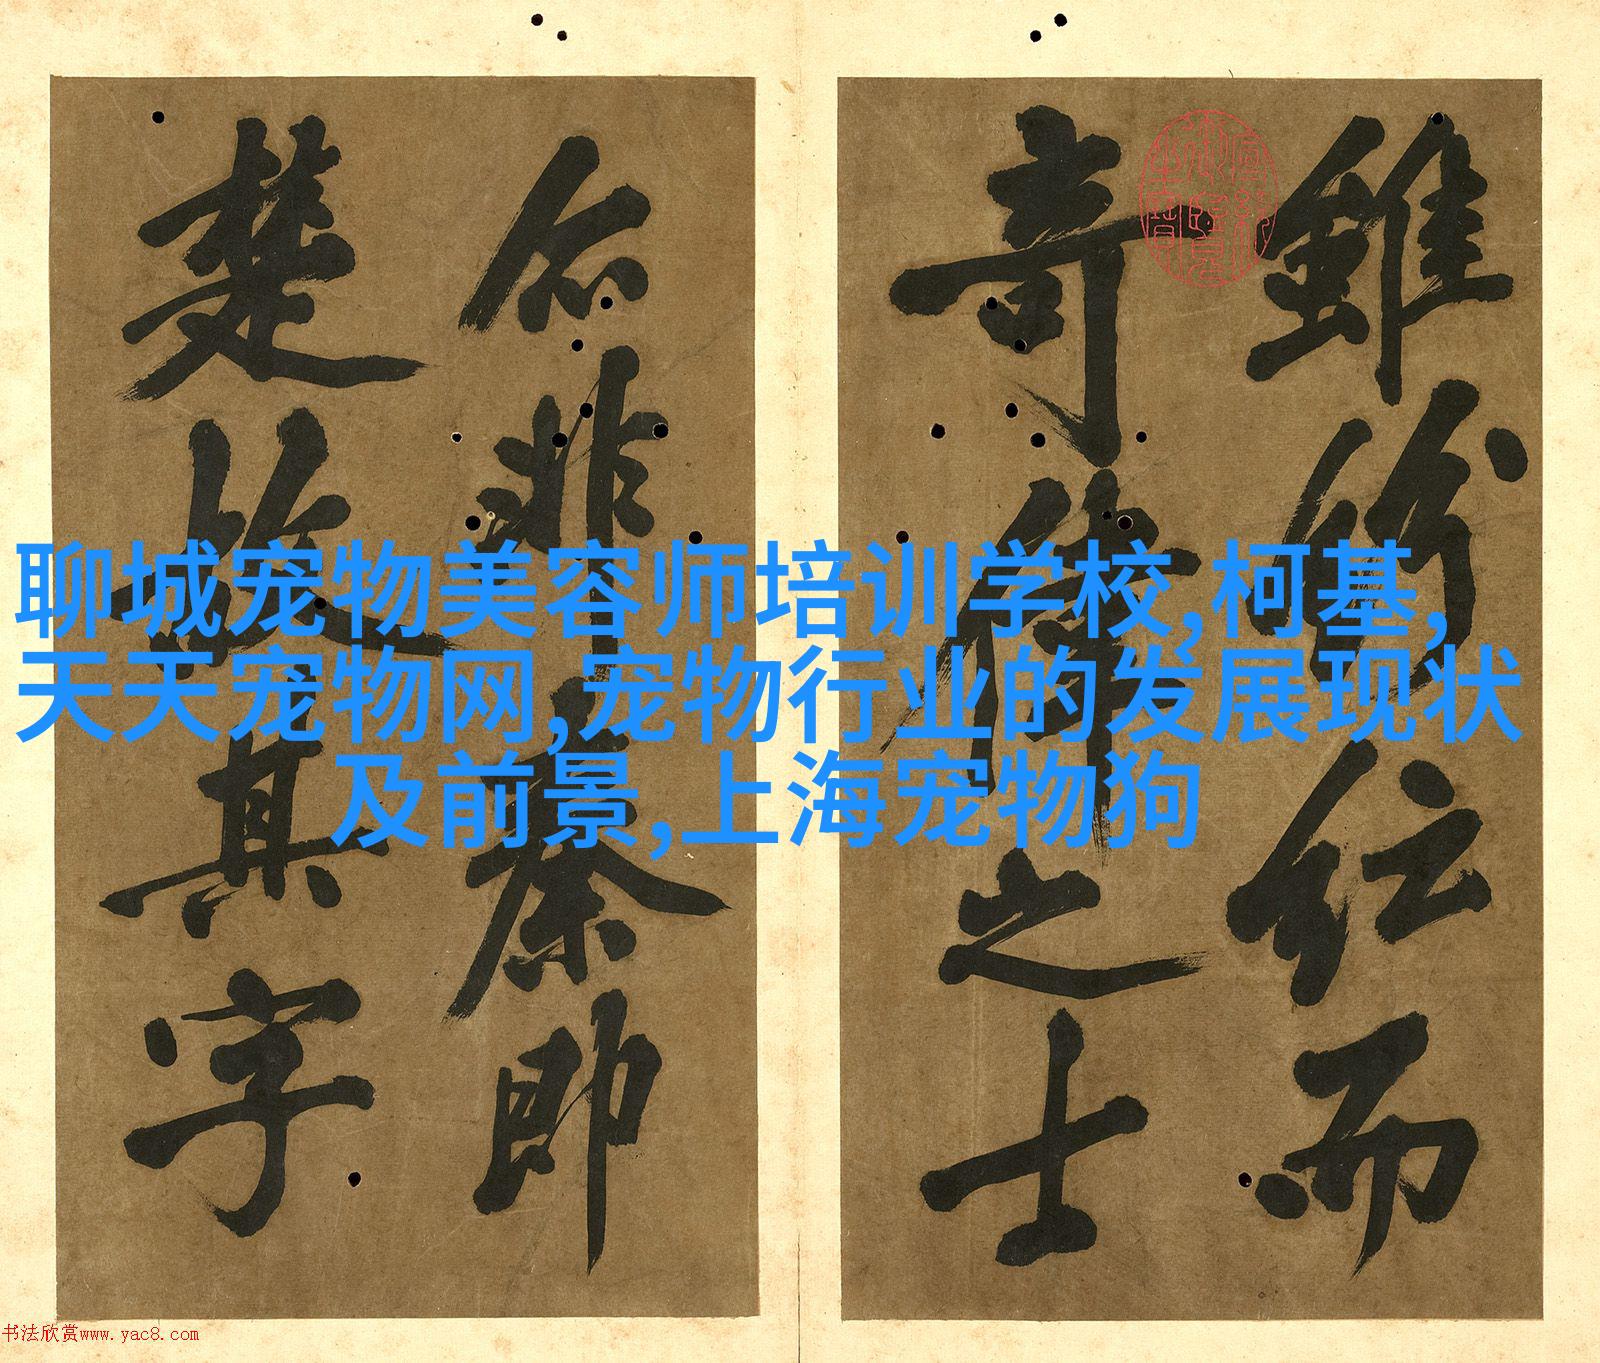 雖紛紜而
奇偉之士
非秦即
楚故其字
聊城宠物美容师培训学校,柯基,
天天宠物网,宠物行业的发展现状
及前景,上海宠物狗
书法欣赏www.yac8.com